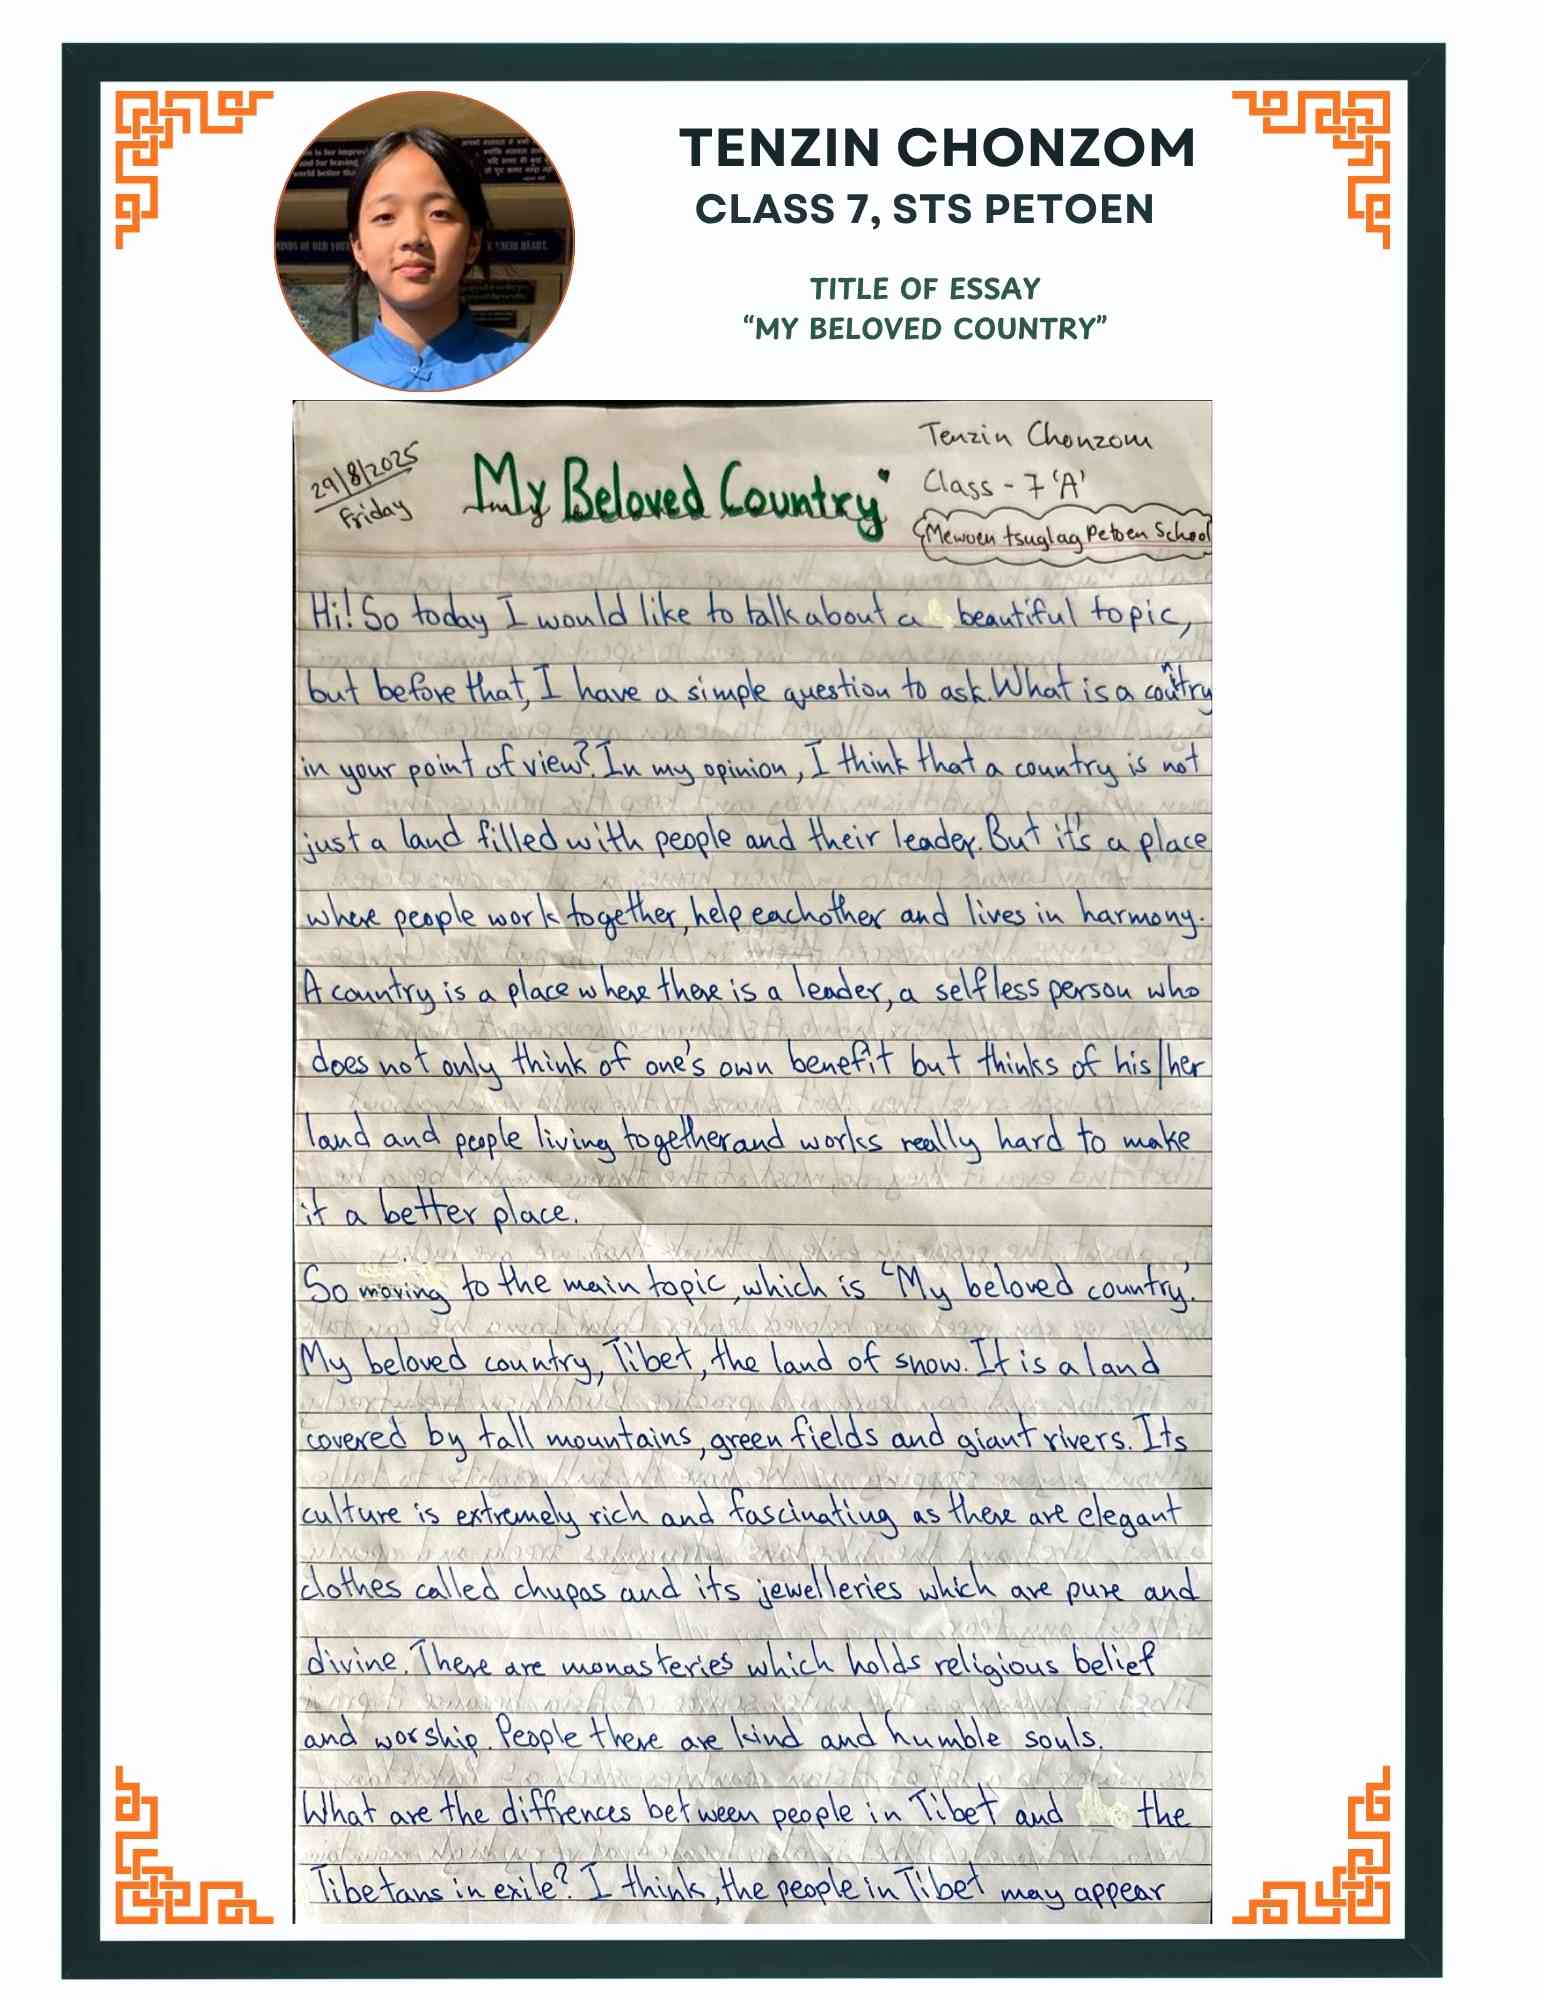 TENZIN CHONZOM
CLASS 7, STS PETOEN
TITLE OF ESSAY
“MY BELOVED COUNTRY”
29/8/2025
Friday
My Beloved Country
Tenzin Chonzom
Class - 7 'A'
Mewoen tsuglag Petoen School
Hi! So today I would like to talk about a beautiful topic,
but before that, I have a simple question to ask. What is a country
in your point of view? In my opinion, I think that a country is not
just a land filled with people and their leader. But it's a place
where people work together, help eachother and lives in harmony.
A country is a place where there is a leader, a selfless person who
does not only think of one's own benefit but thinks of his/her
land and people living together and works really hard to make
it a better place.
So moving to the main topic, which is 'My beloved country.'
My beloved country, Tibet, the land of snow. It is a land
covered by tall mountains, green fields and giant rivers. Its
culture is extremely rich and fascinating as there are elegant
clothes called chupas and its jewelleries which are pure and
divine. There are monasteries which holds religious belief
and worship. People there are kind and humble souls.
What are the diffrences between people in Tibet and the
Tibetans in exile? I think, the people in Tibet may appear